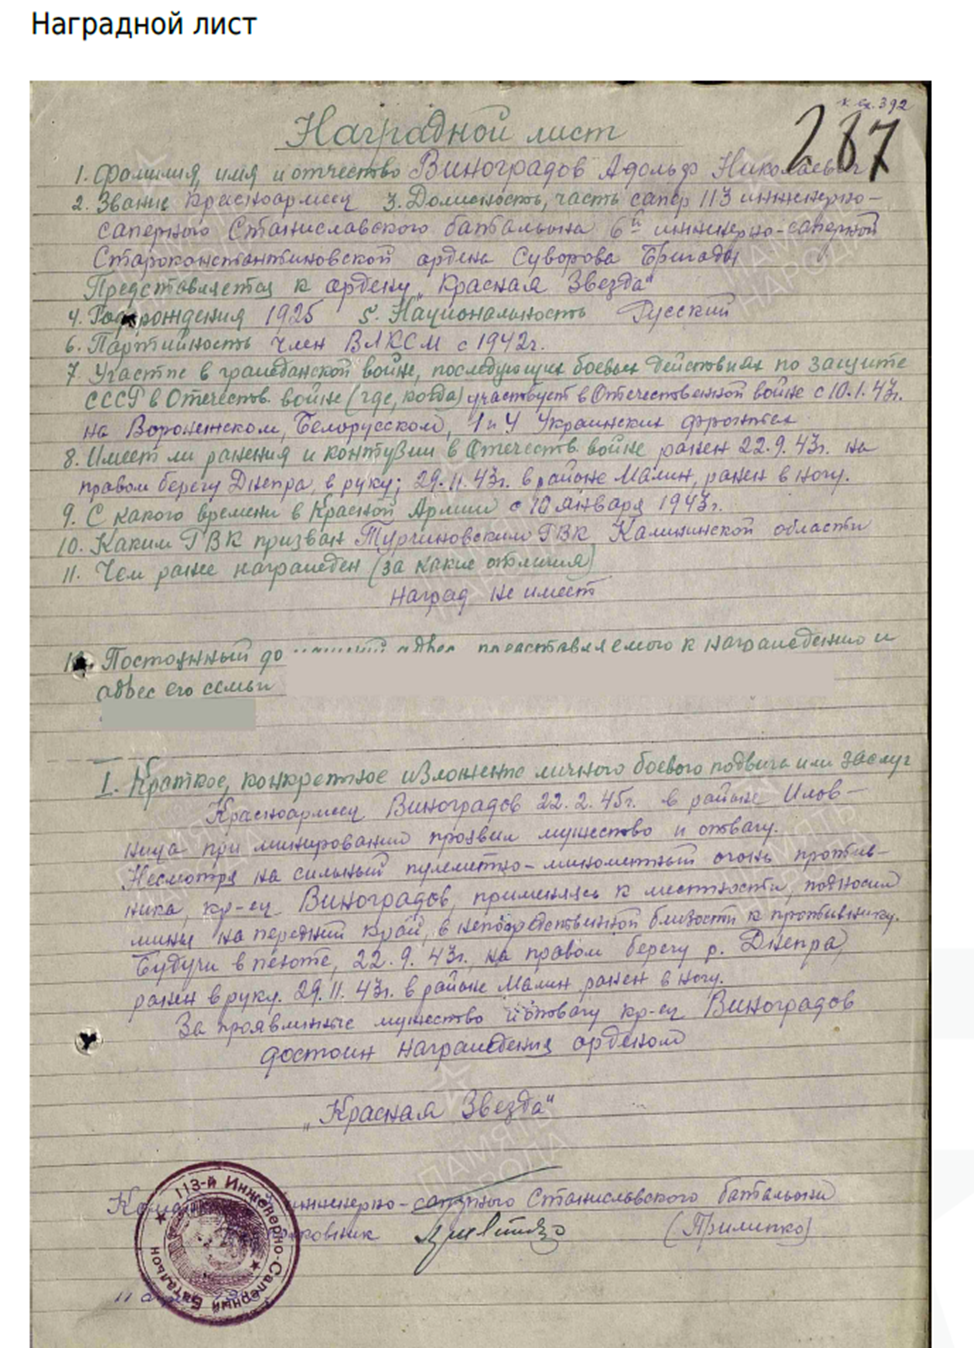 Наградной лист
к вх. 392
287
Наградной лист
1. Фамилия, имя и отчество Виноградов Адольф Николаевич
2. Звание Красноармеец 3. Должность, часть сапер 113 инженерно-
саперного Станиславского батальона 6й инженерно-саперной
Староконстантиновской ордена Суворова Бригады
Представляется к ордену „Красная Звезда"
4. Год рождения 1925 5. Национальность Русский
6. Партийность член ВЛКСМ с 1942г.
7. Участие в гражданской войне, последующих боевых действиях по защите
СССР в Отечеств. войне (где, когда) участвует в Отечественной войне с 10.1.43г.
на Воронежском, Белорусском, 1 и 4 Украинских фронтах
8. Имеет ли ранения и контузии в Отечеств войне ранен 22.9.43г. на
правом берегу Днепра в руку; 29.11.43г. в районе Малин, ранен в ногу.
9. С какого времени в Красной Армии с 10 января 1943г.
10. Каким РВК призван Тургиновским РВК Калининской области
11. Чем ранее награжден (за какие отличия)
Наград не имеет
Постоянный до адрес представляемого к награждению и
адрес его семьи
I. Краткое, конкретное изложение личного боевого подвига или заслуг
Красноармеец Виноградов 22.2.45г. в районе Илов-
ница при минировании проявил мужество и отвагу.
Несмотря на сильный пулеметно-минометный огонь против-
ника, кр-ец Виноградов, применяясь к местности, подносил
мины на передний край, в непосредственной близости к противнику.
Будучи в пехоте, 22.9.43г. на правом берегу р. Днепра,
ранен в руку. 29.11.43г. в районе Малин ранен в ногу.
За проявленные мужество и отвагу кр-ец Виноградов
достоин награждения орденом
„Красная Звезда"
инженерно-саперного Станиславского батальона
(Прилипко)
113-й Инженерно-Саперный Батальон
ПАМЯТЬ НАРОДА